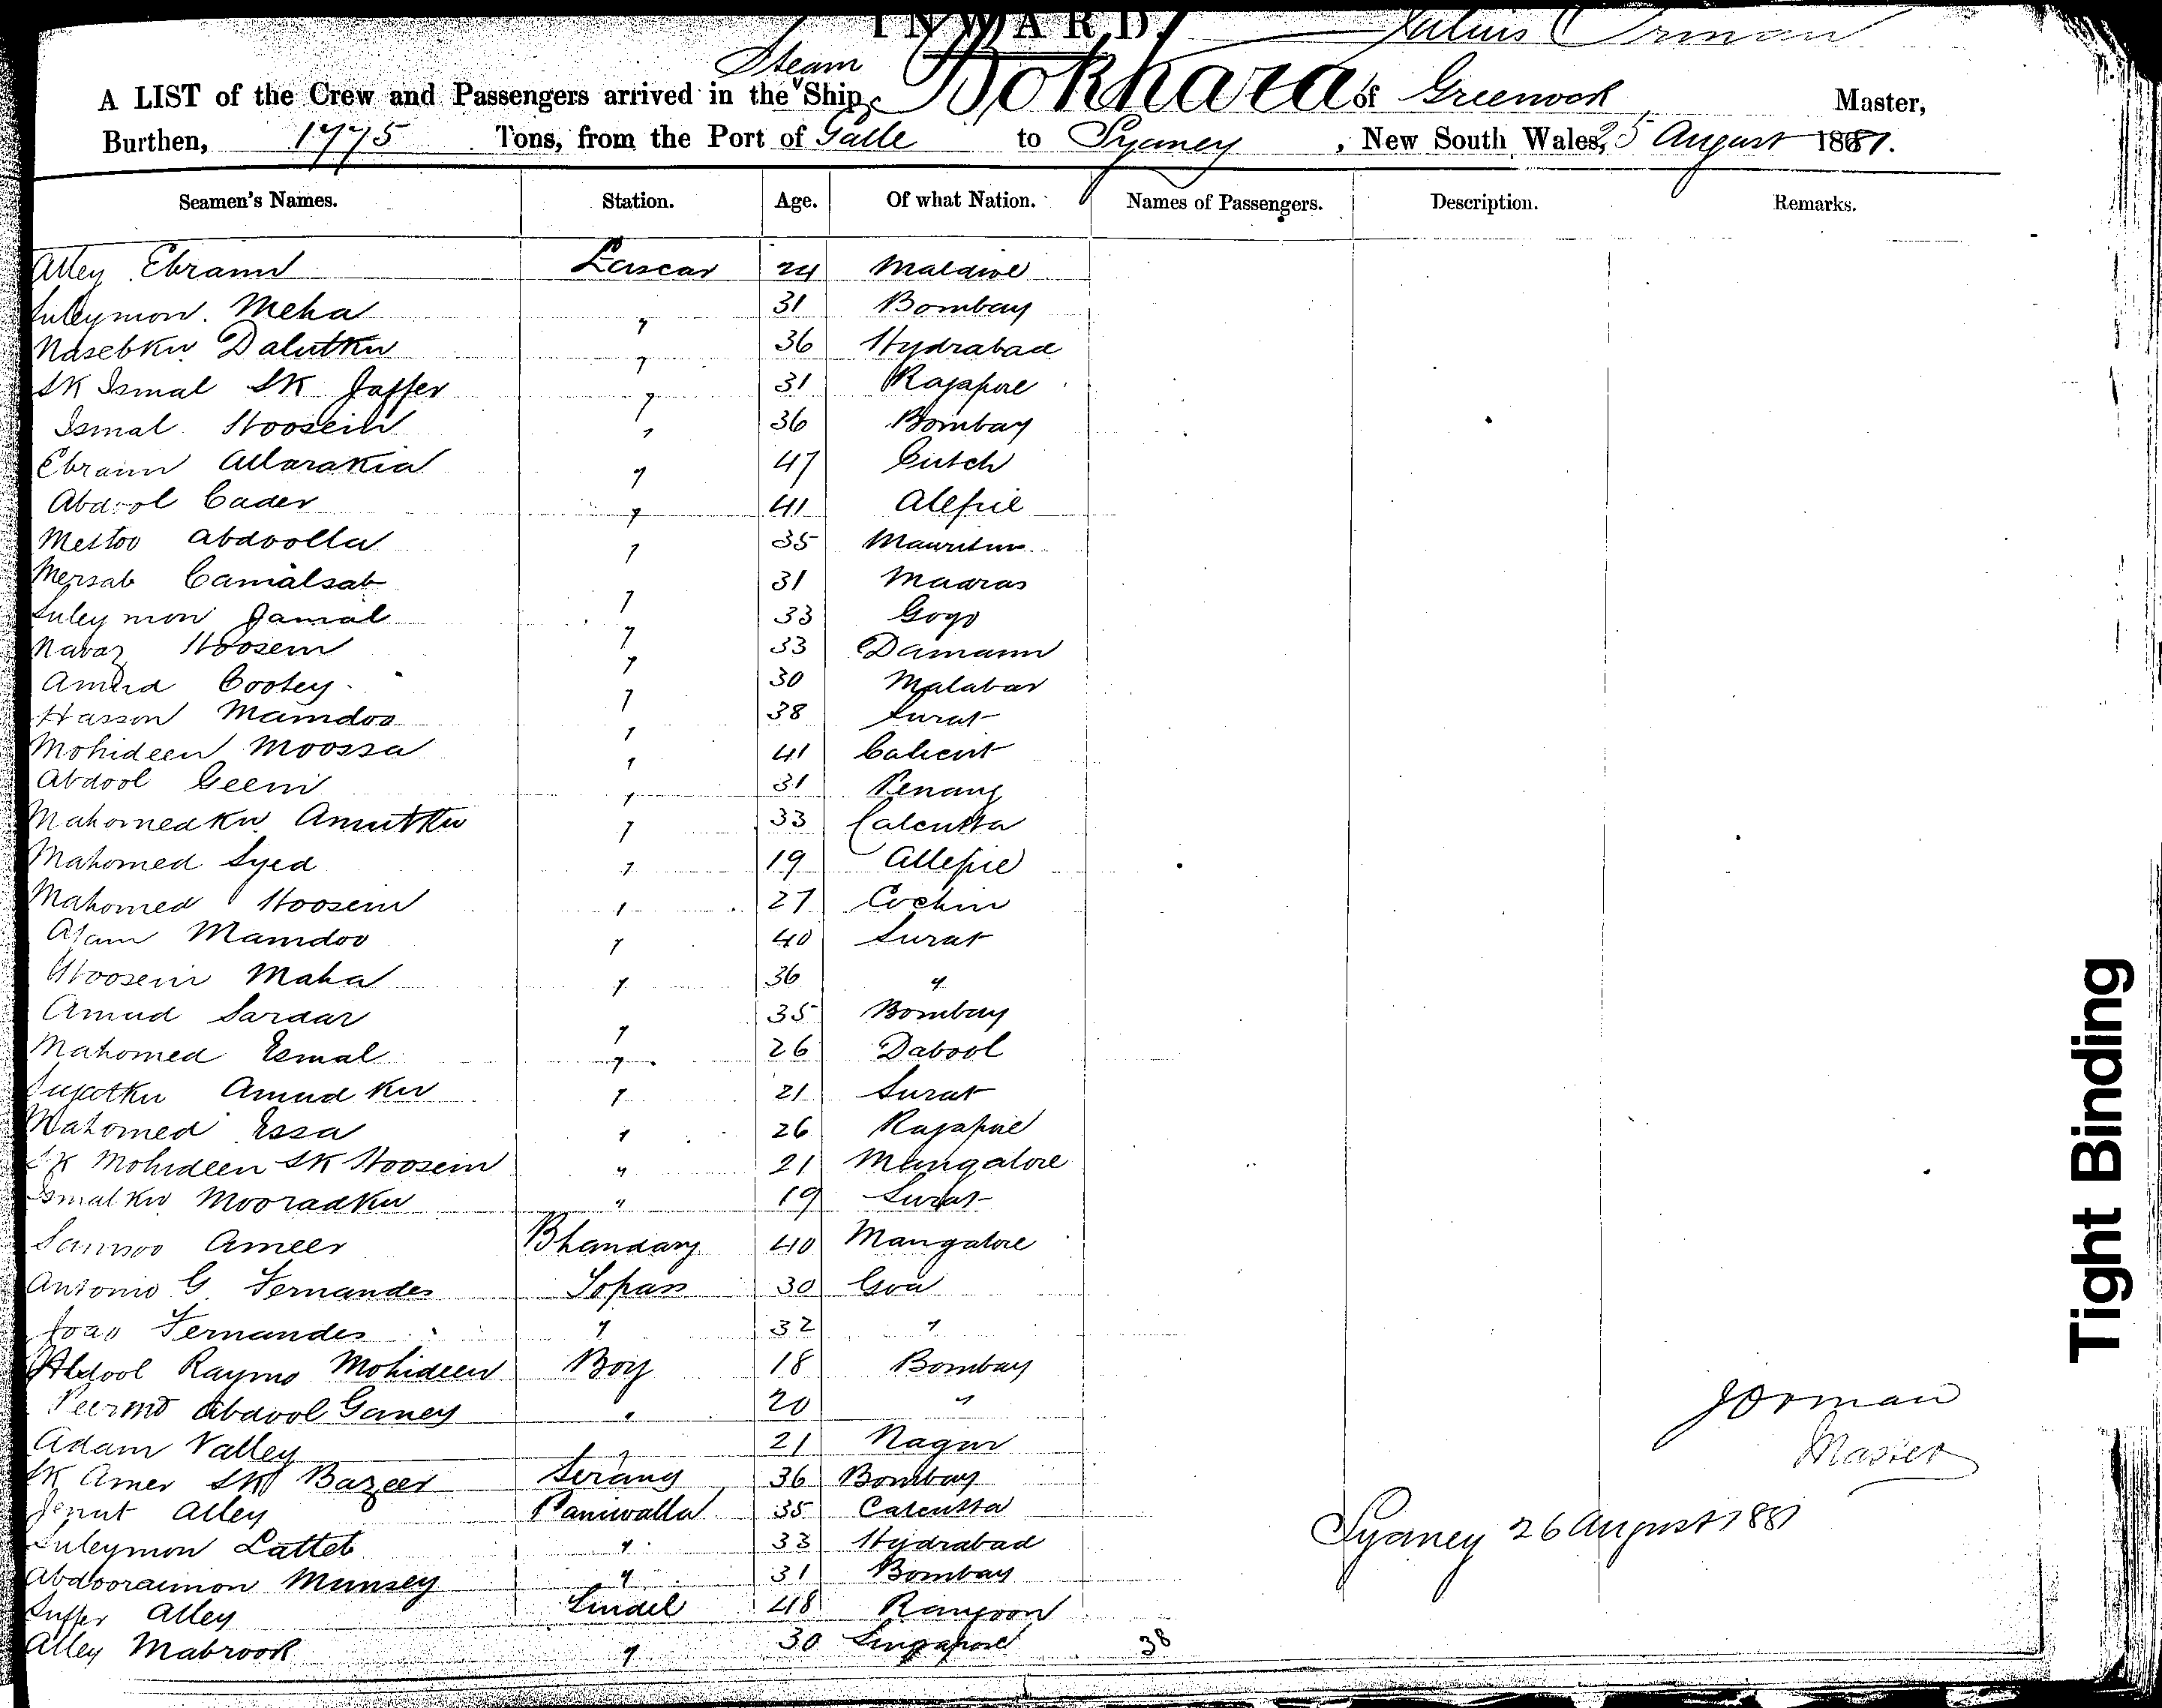 INWARD. Julius Orman
Steam
A LIST of the Crew and Passengers arrived in the Ship, Bokhara of Greenock Master,
Burthen, 1775 Tons, from the Port of Galle to Sydney, New South Wales, 25 August 1881.
Seamen's Names. Station. Age. Of what Nation. Names of Passengers. Description. Remarks.
Alley Ebraim Lascar 24 Maldive
Suleymon Meha " 31 Bombay
Nasebkn Dalutkn " 36 Hydrabad
SK Ismal SK Jaffer " 31 Rajapore
Ismal Hoosein " 36 Bombay
Ebraim Allarakia " 47 Cutch
Abdool Cader " 41 Alepie
Mettoo Abdoolla " 35 Mauritius
Mersab Camalsab " 31 Madras
Suleymon Jamal " 33 Gogo
Navaz Hoosein " 33 Damann
Amud Cootey " 30 Malabar
Hasson Mamdoo " 38 Surat
Mohideen Moossa " 41 Calicut
Abdool Geemi " 31 Penang
Mahomedkn Amutkn " 33 Calcutta
Mahomed Syed " 19 Allepie
Mahomed Hoosein " 27 Cochin
Ajam Mamdoo " 40 Surat
Hoosein Maha " 36 "
Amud Sardar " 35 Bombay
Mahomed Esmal " 26 Dabool
Amudkn " 21 Surat
Mahomed Essa " 26 Rajapore
SK Mohideen SK Hoosein " 21 Mangalore
Ismalkn Mooradkn " 19 Surat
Samoo Ameer Bhandary 40 Mangalore
Antonio G. Fernandes Topass 30 Goa
Joao Fernandes " 32 "
Abdool Raymo Mohideen Boy 18 Bombay
Peermd Abdool Ganey " 20 "
Adam Valley " 21 Nagur
SK Amer SK Bazeer Serang 36 Bombay
Jenut Alley Paniwalla 35 Calcutta
Suleymon Latteb " 33 Hydrabad
Abdooraimon Munsey " 31 Bombay
Suffer Alley Tindel 48 Rangoon
Alley Mabrook " 30 Singapore
38
JOrman
Master
Sydney 26 August 1881
Tight Binding